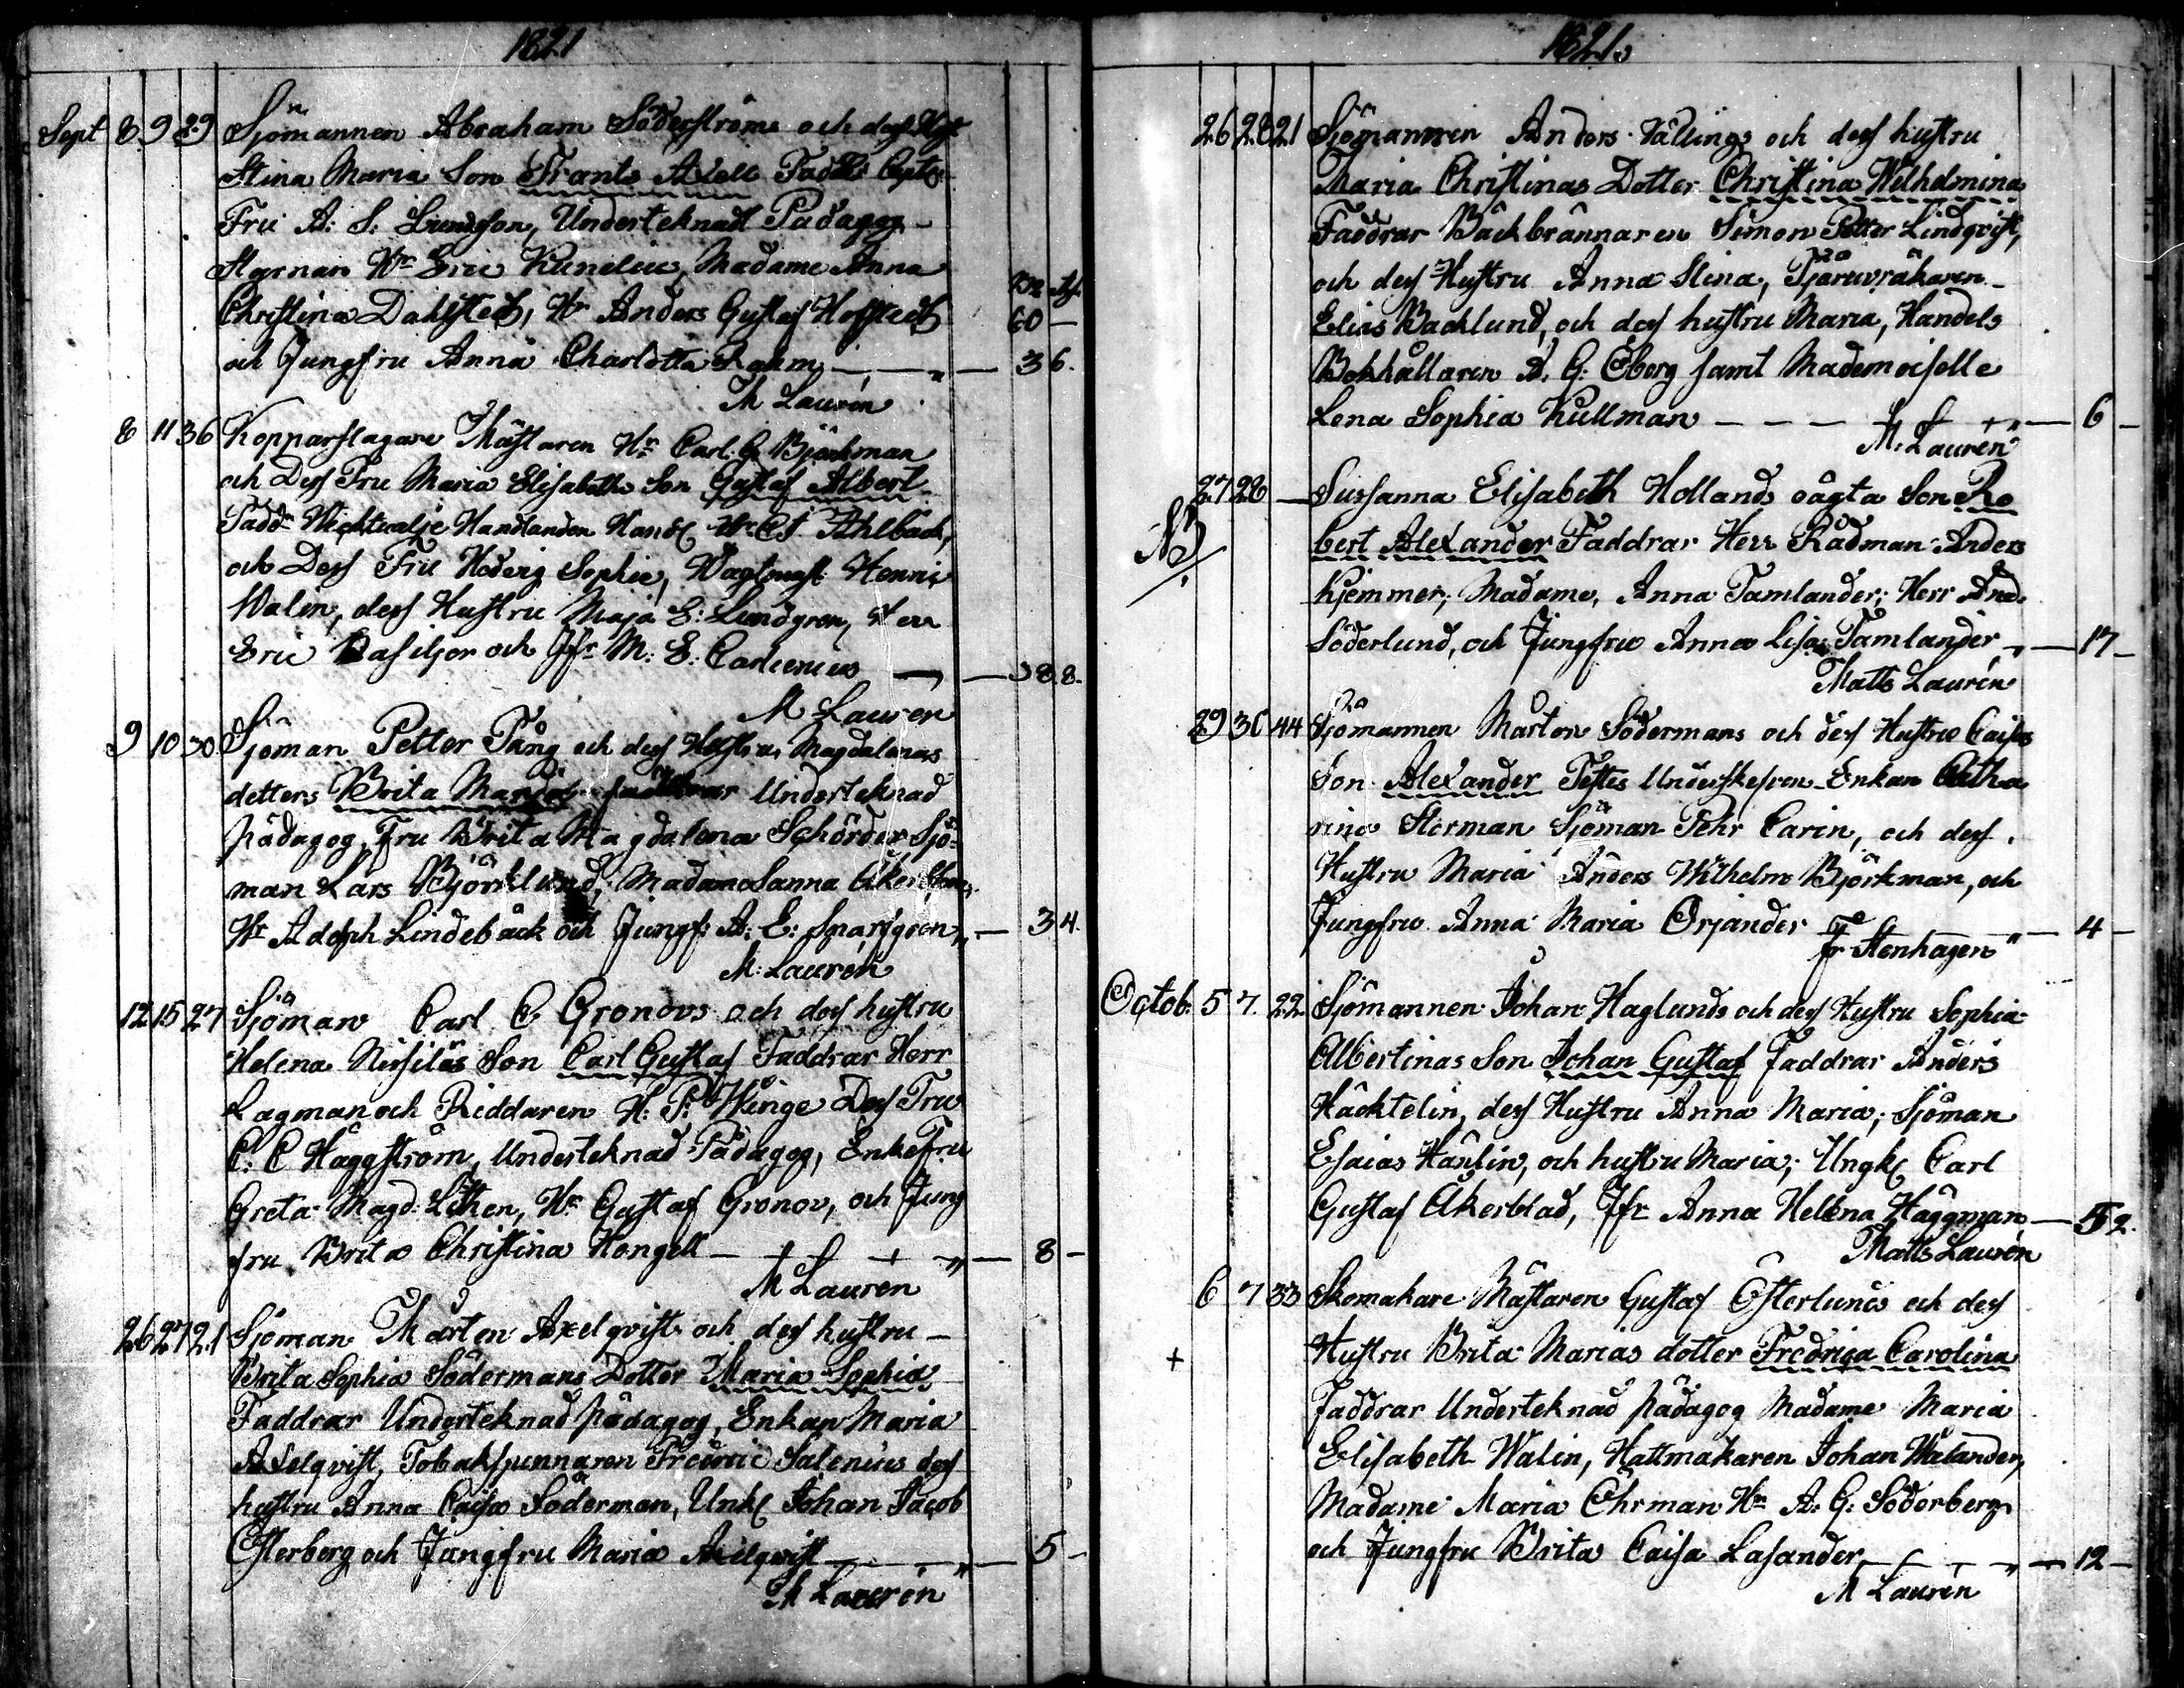 1821
Sept 8 9 29 Sjömannen Abraham Söderströms och dess Hust
Stina Maria Son Frants Axell Fadd:
Fru A: S: Lundson, Underteknad Pädagog
Hr Eric Kunelius, Madame Anna
Christina Dahlstedt, Hr Anders Gustaf Hofstedt 60 —
och Jungfru Anna Charlotta Rahm — „ — 36.
M Laurén
8 11 36 Kopparslagare Mästaren Hr Carl G Björkman
och Dess Fru Maria Elisabeths Son Gustaf Albert
Fadd: Handlanden Hr C J Ahlbäck,
och Dess Fru Hedvig Sophie, Wagtmast: Henric
Walin, dess Hustru Maja E: Lundgren, Herr
Eric Basilier och Jfr M: E: Carlenius — — 38.8.
M Lauren
9 10 30 Sjöman Petter Tång och dess Hustru Magdalenas
dotters Brita Maria faddrar Underteknad
pädagog, Fru Brita Magdalena Schörder Sjö-
man Lars Björklund, Madame Sanna
Hr Adolph Lindebäck och Jungf: A: E: Snarfgren „ — 34.
M: Laurén
12 15 27 Sjöman Carl C Gronovs och dess hustru
Helena Nissiläs Son Carl Gustaf Faddrar Herr
Lagman och Riddaren H: P: Winge Dess Fru
C: C Häggström, Underteknad Pädagog, Enkefru
Greta Magd: Lithen, Hr Gustaf Gronov, och Jung
fru Brita Christina Hongell — „ — 8 —
M Lauren
26 27 21 Sjöman Mårten Axelqvists och dess hustru
Brita Sophia Södermans Dotter Maria Sophia
Faddrar Underteknad pädagog, Enkan Maria
Axelqvist, Tobakspinnaren Fredric Salenius dess
hustru Anna Caisa Söderman, Unkl Johan Jacob
Österberg och Jungfru Maria Axelqvist — „ — 5 —
M Laurén
1821.
26 28 21 Sjömannen Anders Vällings och dess hustru
Maria Christinas Dotter Christina Wilhelmina
Faddrar Bäckbrännaren Simon Petter Lindqvist,
och dess Hustru Anna Stina, Tjäruvräkaren
Elias Backlund, och dess hustru Maria, Handels
Bokhållaren A. G: Öberg samt Mademoiselle
Lena Sophia Kullman — — — „ — 6 —
M: Lauren
27 28 — Sussanna Elisabeth Hollands oägta Son Ro
NB
bert Alexander Faddrar Herr Rådman Anders
Kjemmer, Madame, Anna Tamlander, Herr And:
Söderlund, och Jungfru Anna Lisa Tamlander „ — 17 —
Matts Laurén
29 30 44 Sjömannen Mårten Södermans och dess Hustru Caisas
Son Alexander Testes Underskefven Enkan Catha
rina Storman Sjöman Pehr Carin, och dess
Hustru Maria Anders Wilhelm Björkman, och
Jungfru Anna Maria Orjander — 4 —
Fr Stenhagen
Octob: 5 7. 22 Sjömannen Johan Haglunds och dess Hustru Sophia
Albertinas Son Johan Gustaf Faddrar Anders
Häcktelin, dess Hustru Anna Maria, Sjöman
Esaias Haulin, och hustru Maria, Ungk Carl
Gustaf Åkerblad, Jfr Anna Helena Häggman — 52.
Matts Laurén
6 7 33 Skomakare Mästaren Gustaf Österlunds och dess
+ Hustru Brita Marias dotter Fredrica Carolina
Faddrar Underteknad pädagog Madame Maria
Elisabeth Walin, Hattmakaren Johan Welander,
Madame Maria Öhrman Hr A: G: Söderberg
och Jungfru Brita Caisa Lasander — „ — 12 —
M Laurén